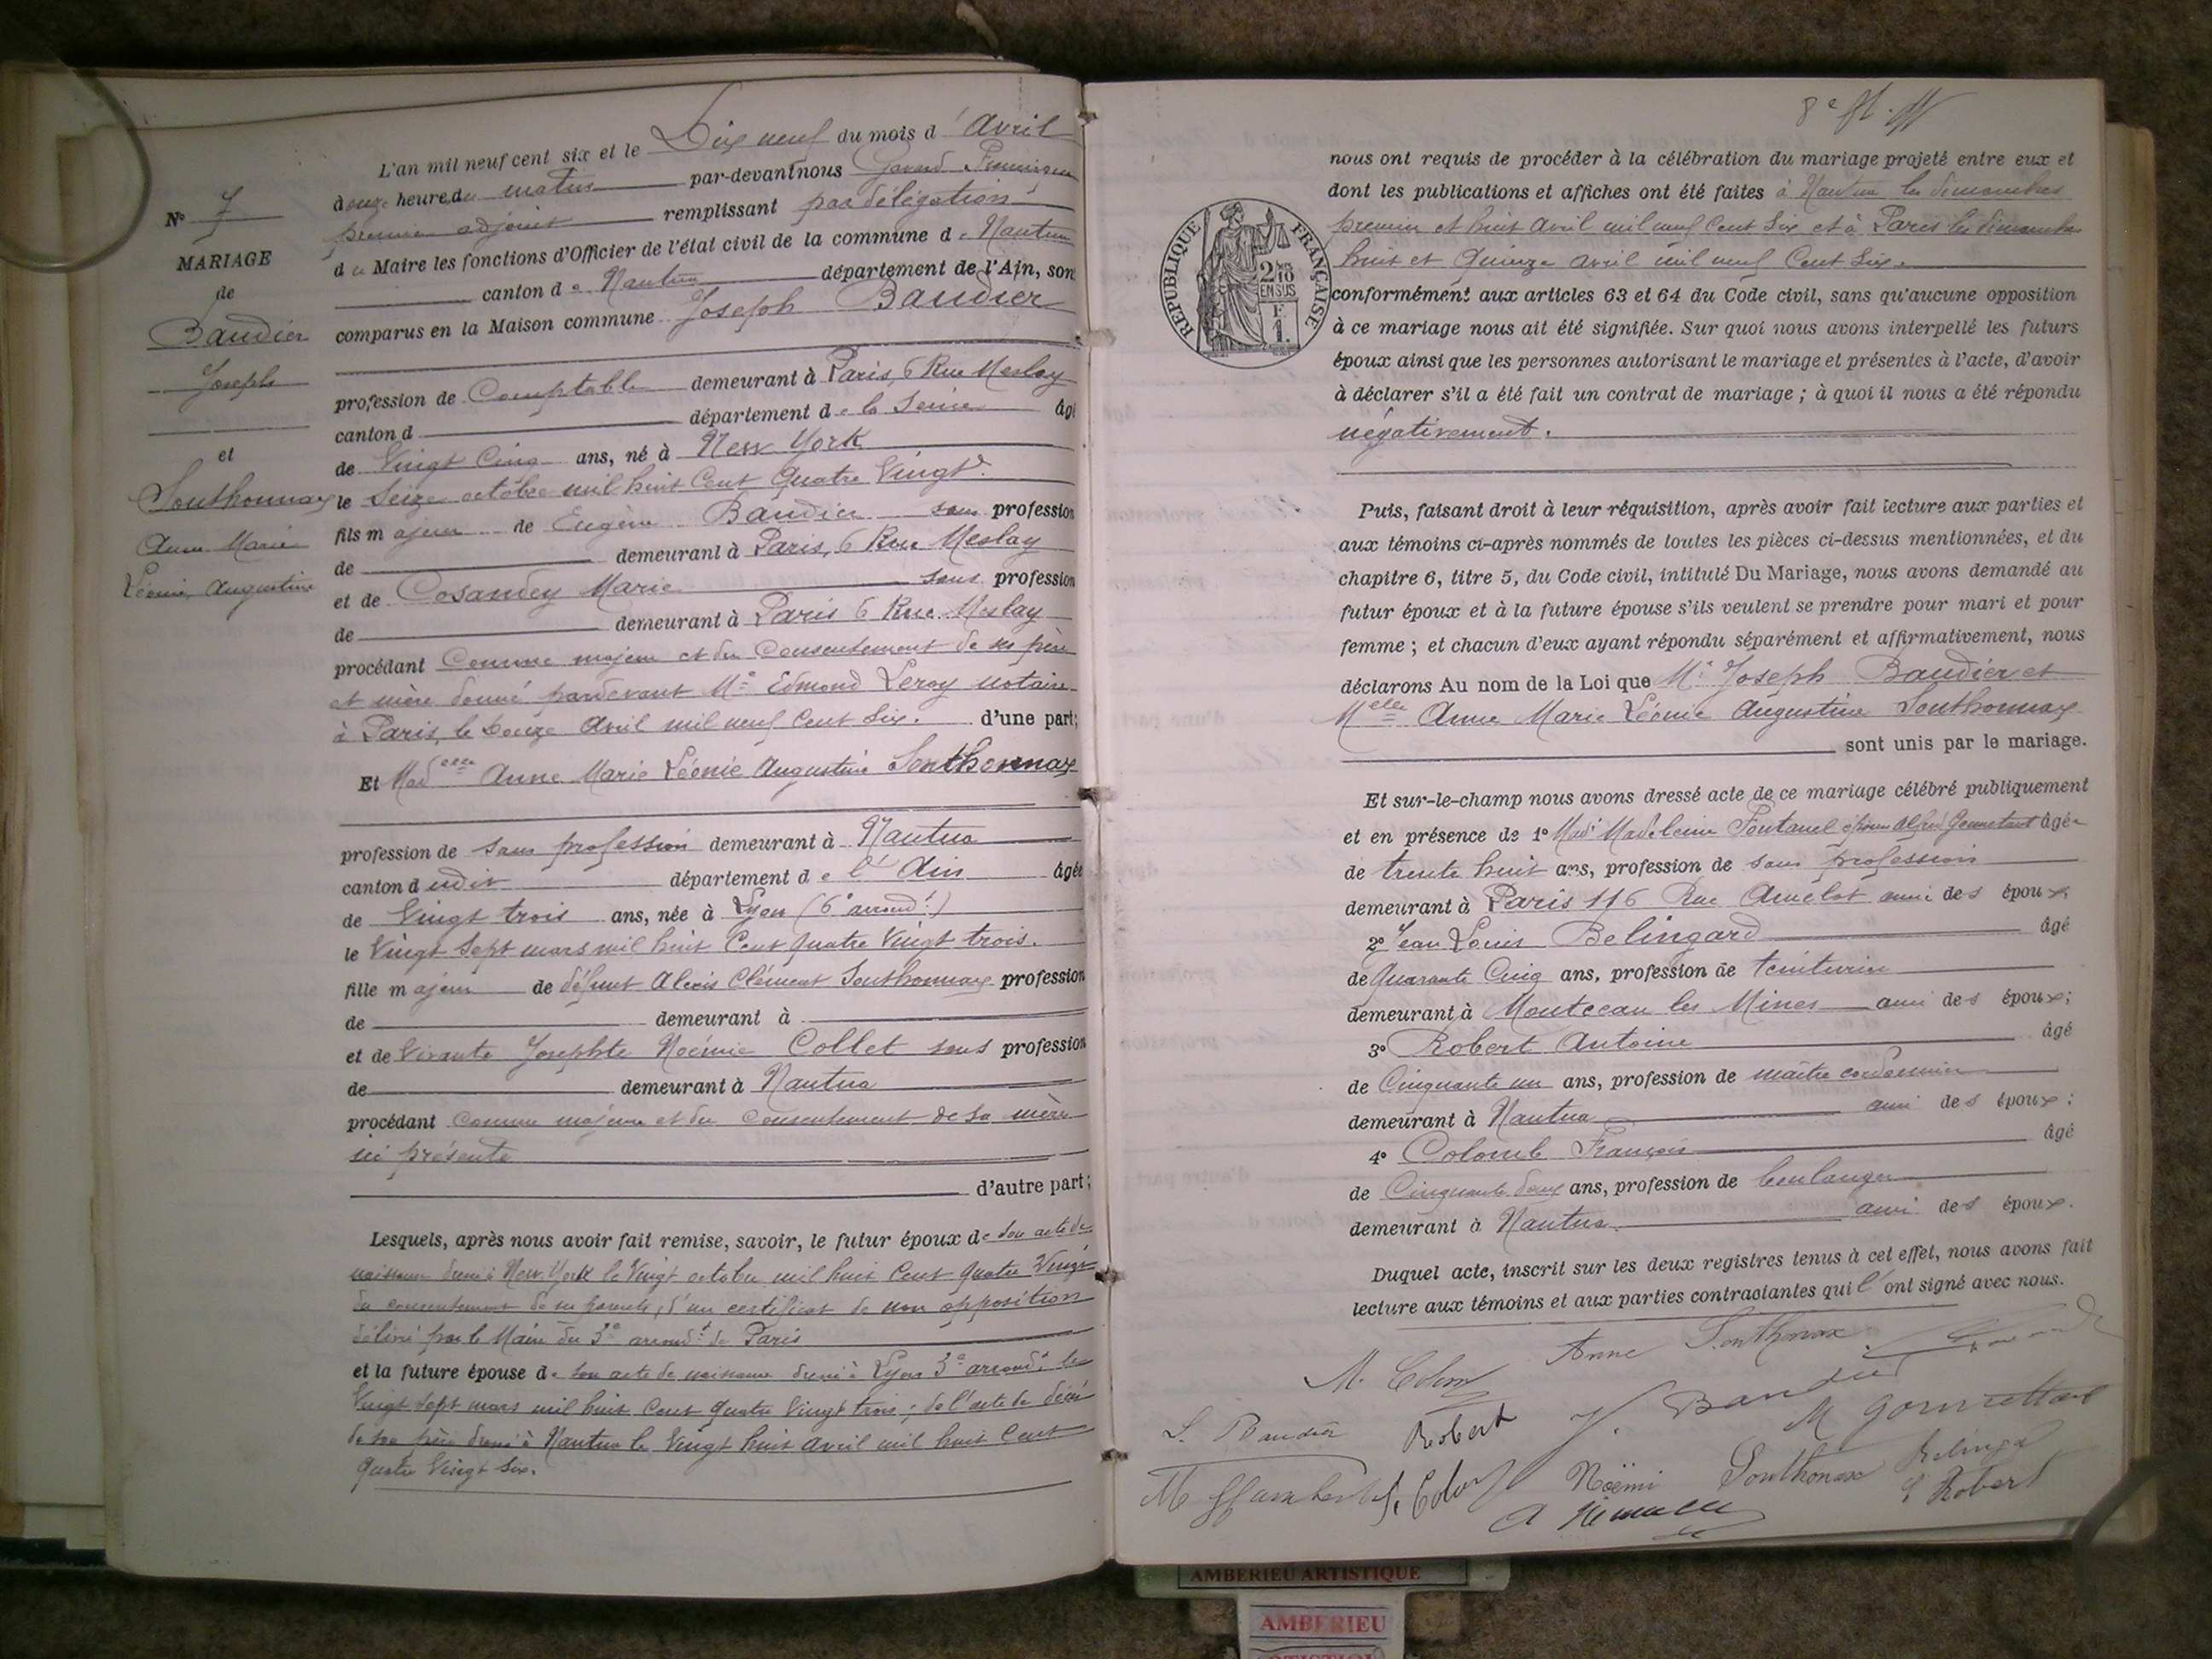 N° 7
MARIAGE
de
Baudier
Joseph
et
Southonnax
Anne Marie
Léonie Augustine
L'an mil neuf cent six et le Dix neuf du mois d'Avril
à onze heures du matin par-devant nous Gavard
premier adjoint remplissant par délégation
du Maire les fonctions d'Officier de l'état civil de la commune de Nantua
canton de Nantua département de l'Ain, sont
comparus en la Maison commune Joseph Baudier
profession de Comptable demeurant à Paris, 6 Rue Meslay
canton d département de la Seine âgé
de Vingt Cinq ans, né à New York
le Seize octobre mil huit Cent Quatre Vingt.
fils majeur de Eugène Baudier sans profession
de demeurant à Paris, 6 Rue Meslay
et de Cosandey Marie sans profession
de demeurant à Paris 6 Rue Meslay
procédant Comme majeur et du Consentement de ses père
et mère donné pardevant Me Edmond Leroy notaire
à Paris, le Douze Avril mil neuf Cent Six. d'une part;
Et Madelle Anne Marie Léonie Augustine Southonnax
profession de sans profession demeurant à Nantua
canton dudit département de l'Ain âgée
de Vingt trois ans, née à Lyon (6e arrondt)
le Vingt Sept mars mil huit Cent Quatre Vingt trois.
fille majeure de défunt Alexis Clément Southonnax profession
de demeurant à
et de Vivante Josephte Noémie Collet sans profession
de demeurant à Nantua
procédant comme majeure et du consentement de sa mère
ici présente
d'autre part;
Lesquels, après nous avoir fait remise, savoir, le futur époux de son acte de
naissance dressé à New York le Vingt octobre mil huit Cent Quatre Vingt
du consentement de ses parents, d'un certificat de non opposition
délivré par le Maire du 3e arrondt de Paris
et la future épouse de son acte de naissance dressé à Lyon 3e arrondt le
Vingt Sept mars mil huit Cent Quatre Vingt trois; de l'acte de décès
de son père dressé à Nantua le Vingt huit avril mil huit Cent
Quatre Vingt Six.
8e
nous ont requis de procéder à la célébration du mariage projeté entre eux et
dont les publications et affiches ont été faites à Nantua les dimanches
premier et huit avril mil neuf Cent Six et à Paris les dimanches
huit et Quinze avril mil neuf Cent Six.
RÉPUBLIQUE FRANÇAISE
2/10 EN SUS
F. 1.
conformément aux articles 63 et 64 du Code civil, sans qu'aucune opposition
à ce mariage nous ait été signifiée. Sur quoi nous avons interpellé les futurs
époux ainsi que les personnes autorisant le mariage et présentes à l'acte, d'avoir
à déclarer s'il a été fait un contrat de mariage ; à quoi il nous a été répondu
négativement.
Puis, faisant droit à leur réquisition, après avoir fait lecture aux parties et
aux témoins ci-après nommés de toutes les pièces ci-dessus mentionnées, et du
chapitre 6, titre 5, du Code civil, intitulé Du Mariage, nous avons demandé au
futur époux et à la future épouse s'ils veulent se prendre pour mari et pour
femme ; et chacun d'eux ayant répondu séparément et affirmativement, nous
déclarons Au nom de la Loi que Mr Joseph Baudier et
Melle Anne Marie Léonie Augustine Southonnax
sont unis par le mariage.
Et sur-le-champ nous avons dressé acte de ce mariage célébré publiquement
et en présence de 1° Made Madeleine Fontanel épouse Alfred âgée
de trente huit ans, profession de sans profession
demeurant à Paris 116 Rue Amelot amie des époux;
2° Jean Louis Belingard âgé
de Quarante Cinq ans, profession de teinturier
demeurant à Montceau les Mines ami des époux;
3° Robert Antoine âgé
de Cinquante un ans, profession de maître cordonnier
demeurant à Nantua ami des époux;
4° Colomb François âgé
de Cinquante deux ans, profession de boulanger
demeurant à Nantua ami des époux.
Duquel acte, inscrit sur les deux registres tenus à cet effet, nous avons fait
lecture aux témoins et aux parties contractantes qui l'ont signé avec nous.
Anne Southonax
M. Colomb
J. Baudier
M Gonnettant
Robert
Baudier
Noëmi Southonax
Robert
AMBERIEU ARTISTIQUE
AMBERIEU